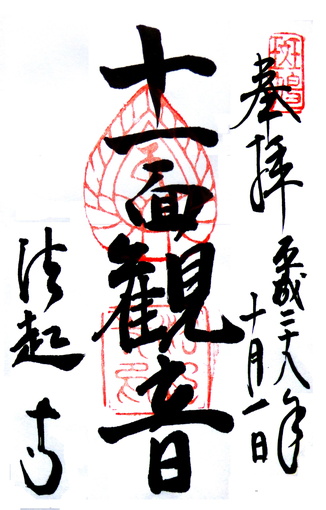 奉拝
平成二十八年
十月一日
十一面観音
法起寺
斑鳩